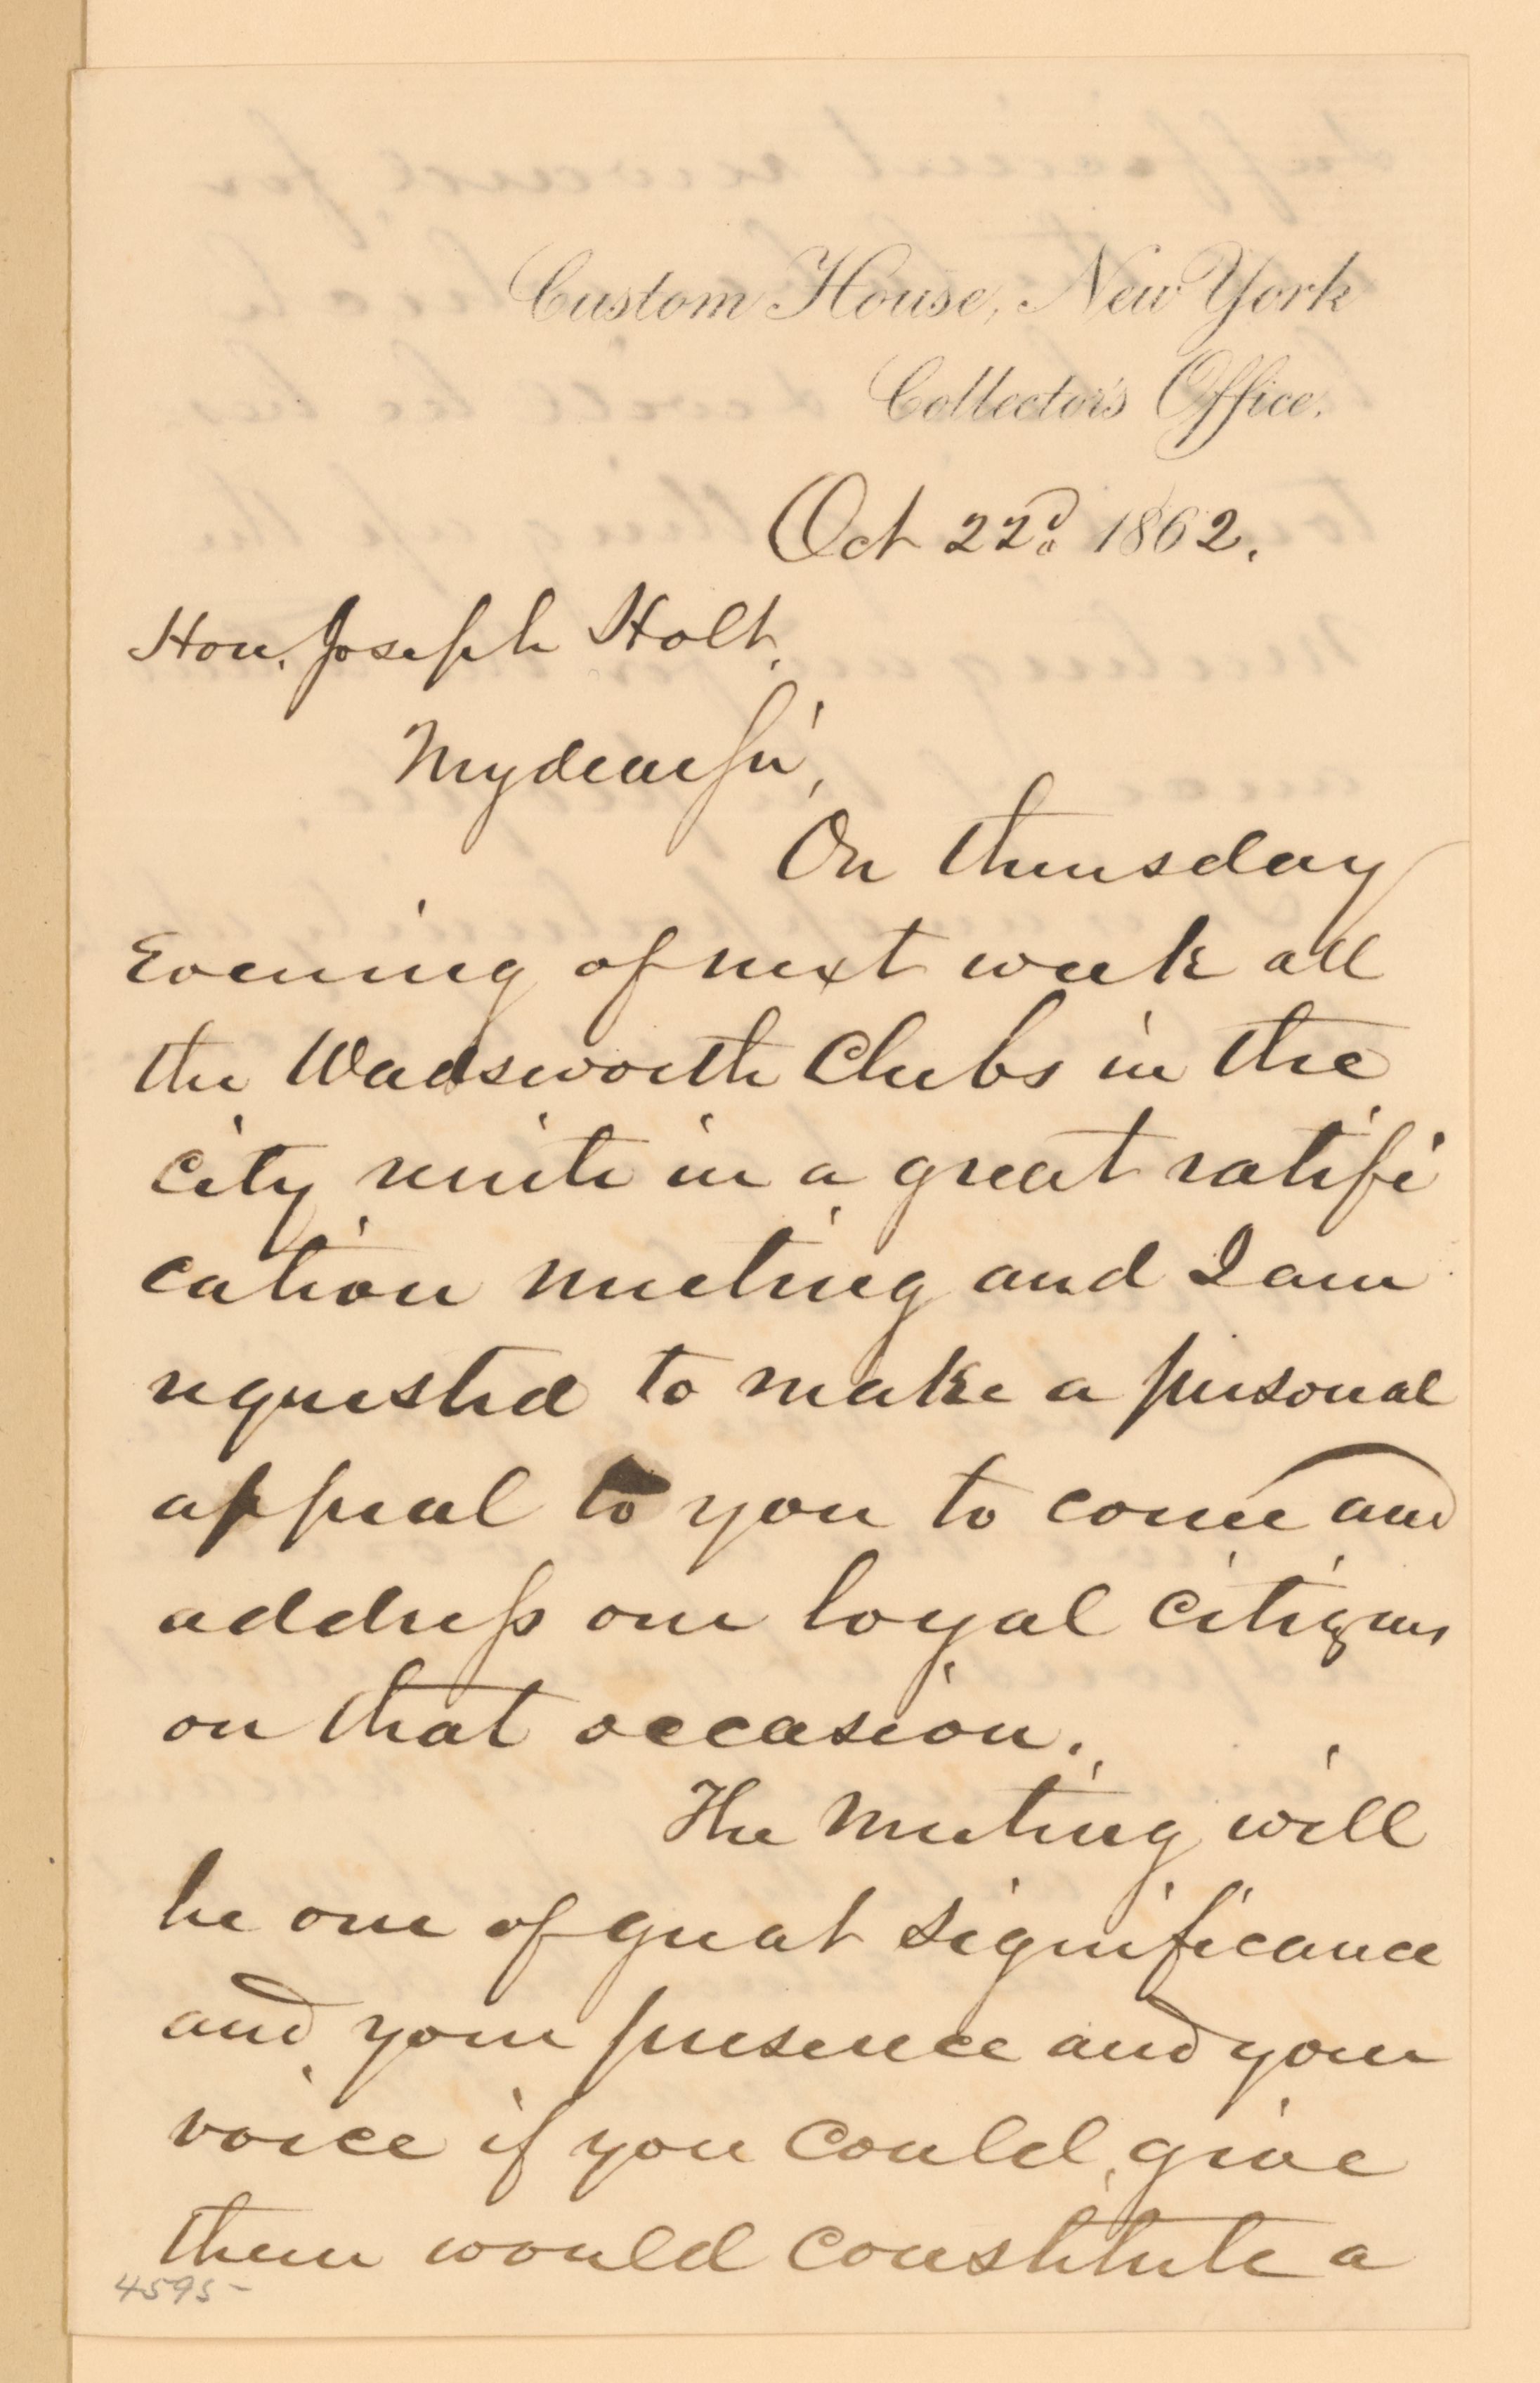 Custom House, New York
Collector's Office.
Oct 22d. 1862.
Hon. Joseph Holt,
My dear Sir,
On thursday
Evening of next week all
the Wadsworth Clubs in the
City unite in a great ratifi
cation meeting and I am
requested to make a personal
appeal to you to come and
address our loyal Citizens
on that occasion.
The meeting will
be one of great significance
and your presence and your
voice if you could give
them would constitute a
4595-